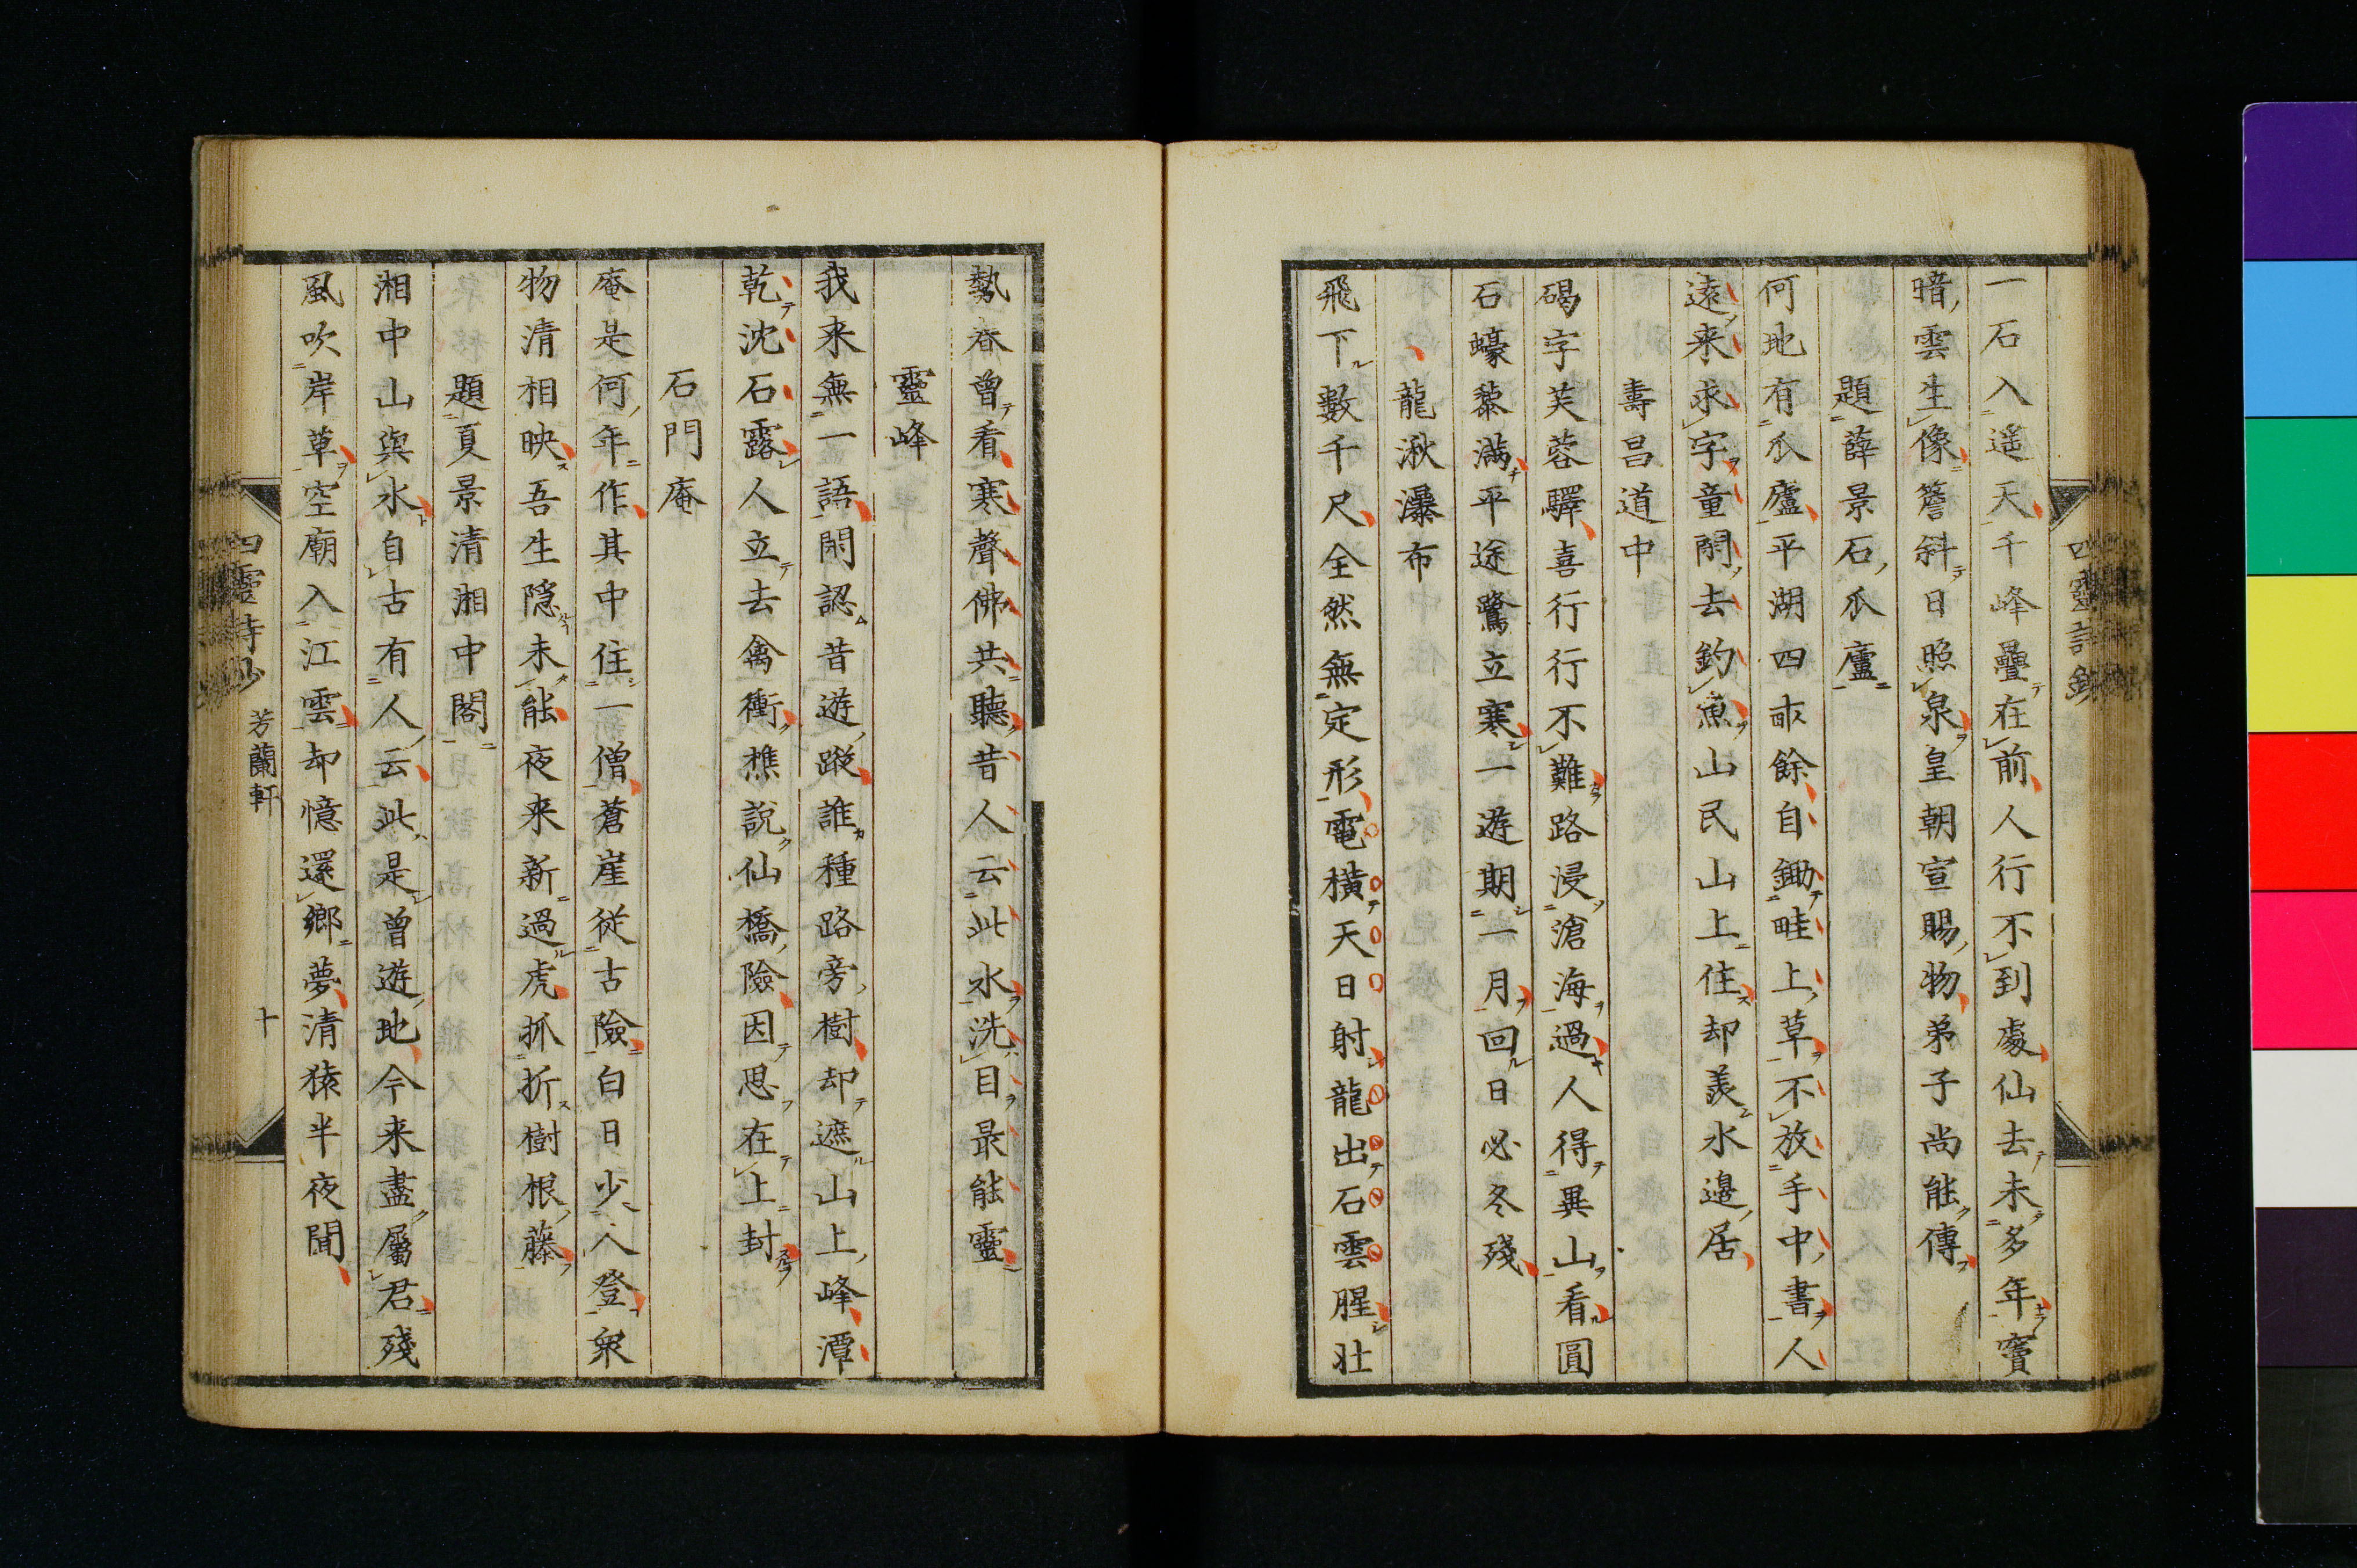 一石入遥天千峰疊在前人行不到處仙去未多年竇
暗雲生像簷斜日照泉皇朝宣賜物弟子尚能傳
題薛景石瓜廬
何地有瓜廬平湖四畝餘自鋤畦上草不放手中書人
遠来求字童閑去釣魚山民山上住却羨水邉居
壽昌道中
碣字芙蓉驛喜行行不難路浸滄海過人得異山看圓
石蠔黎滿平途鷺立寒一遊期一月回日必冬殘
龍湫瀑布
飛下數千尺全然無定形電橫天日射龍出石雲腥壯
四靈詩鈔
勢春曾看寒聲佛共聽昔人云此水洗目最能靈
靈峰
我来無一語閑認昔遊蹤誰種路旁樹却遮山上峰潭
乾沈石露人立去禽衝樵說仙橋險因思在上封
石門庵
庵是何年作其中住一僧蒼崖從古險白日少人登衆
物清相映吾生隠未能夜来新過虎抓折樹根藤
題夏景清湘中閣
湘中山與水自古有人云此是曾遊地今来盡屬君殘
風吹岸草空廟入江雲却憶還鄉夢清猿半夜聞
四靈詩鈔 芳蘭軒 十